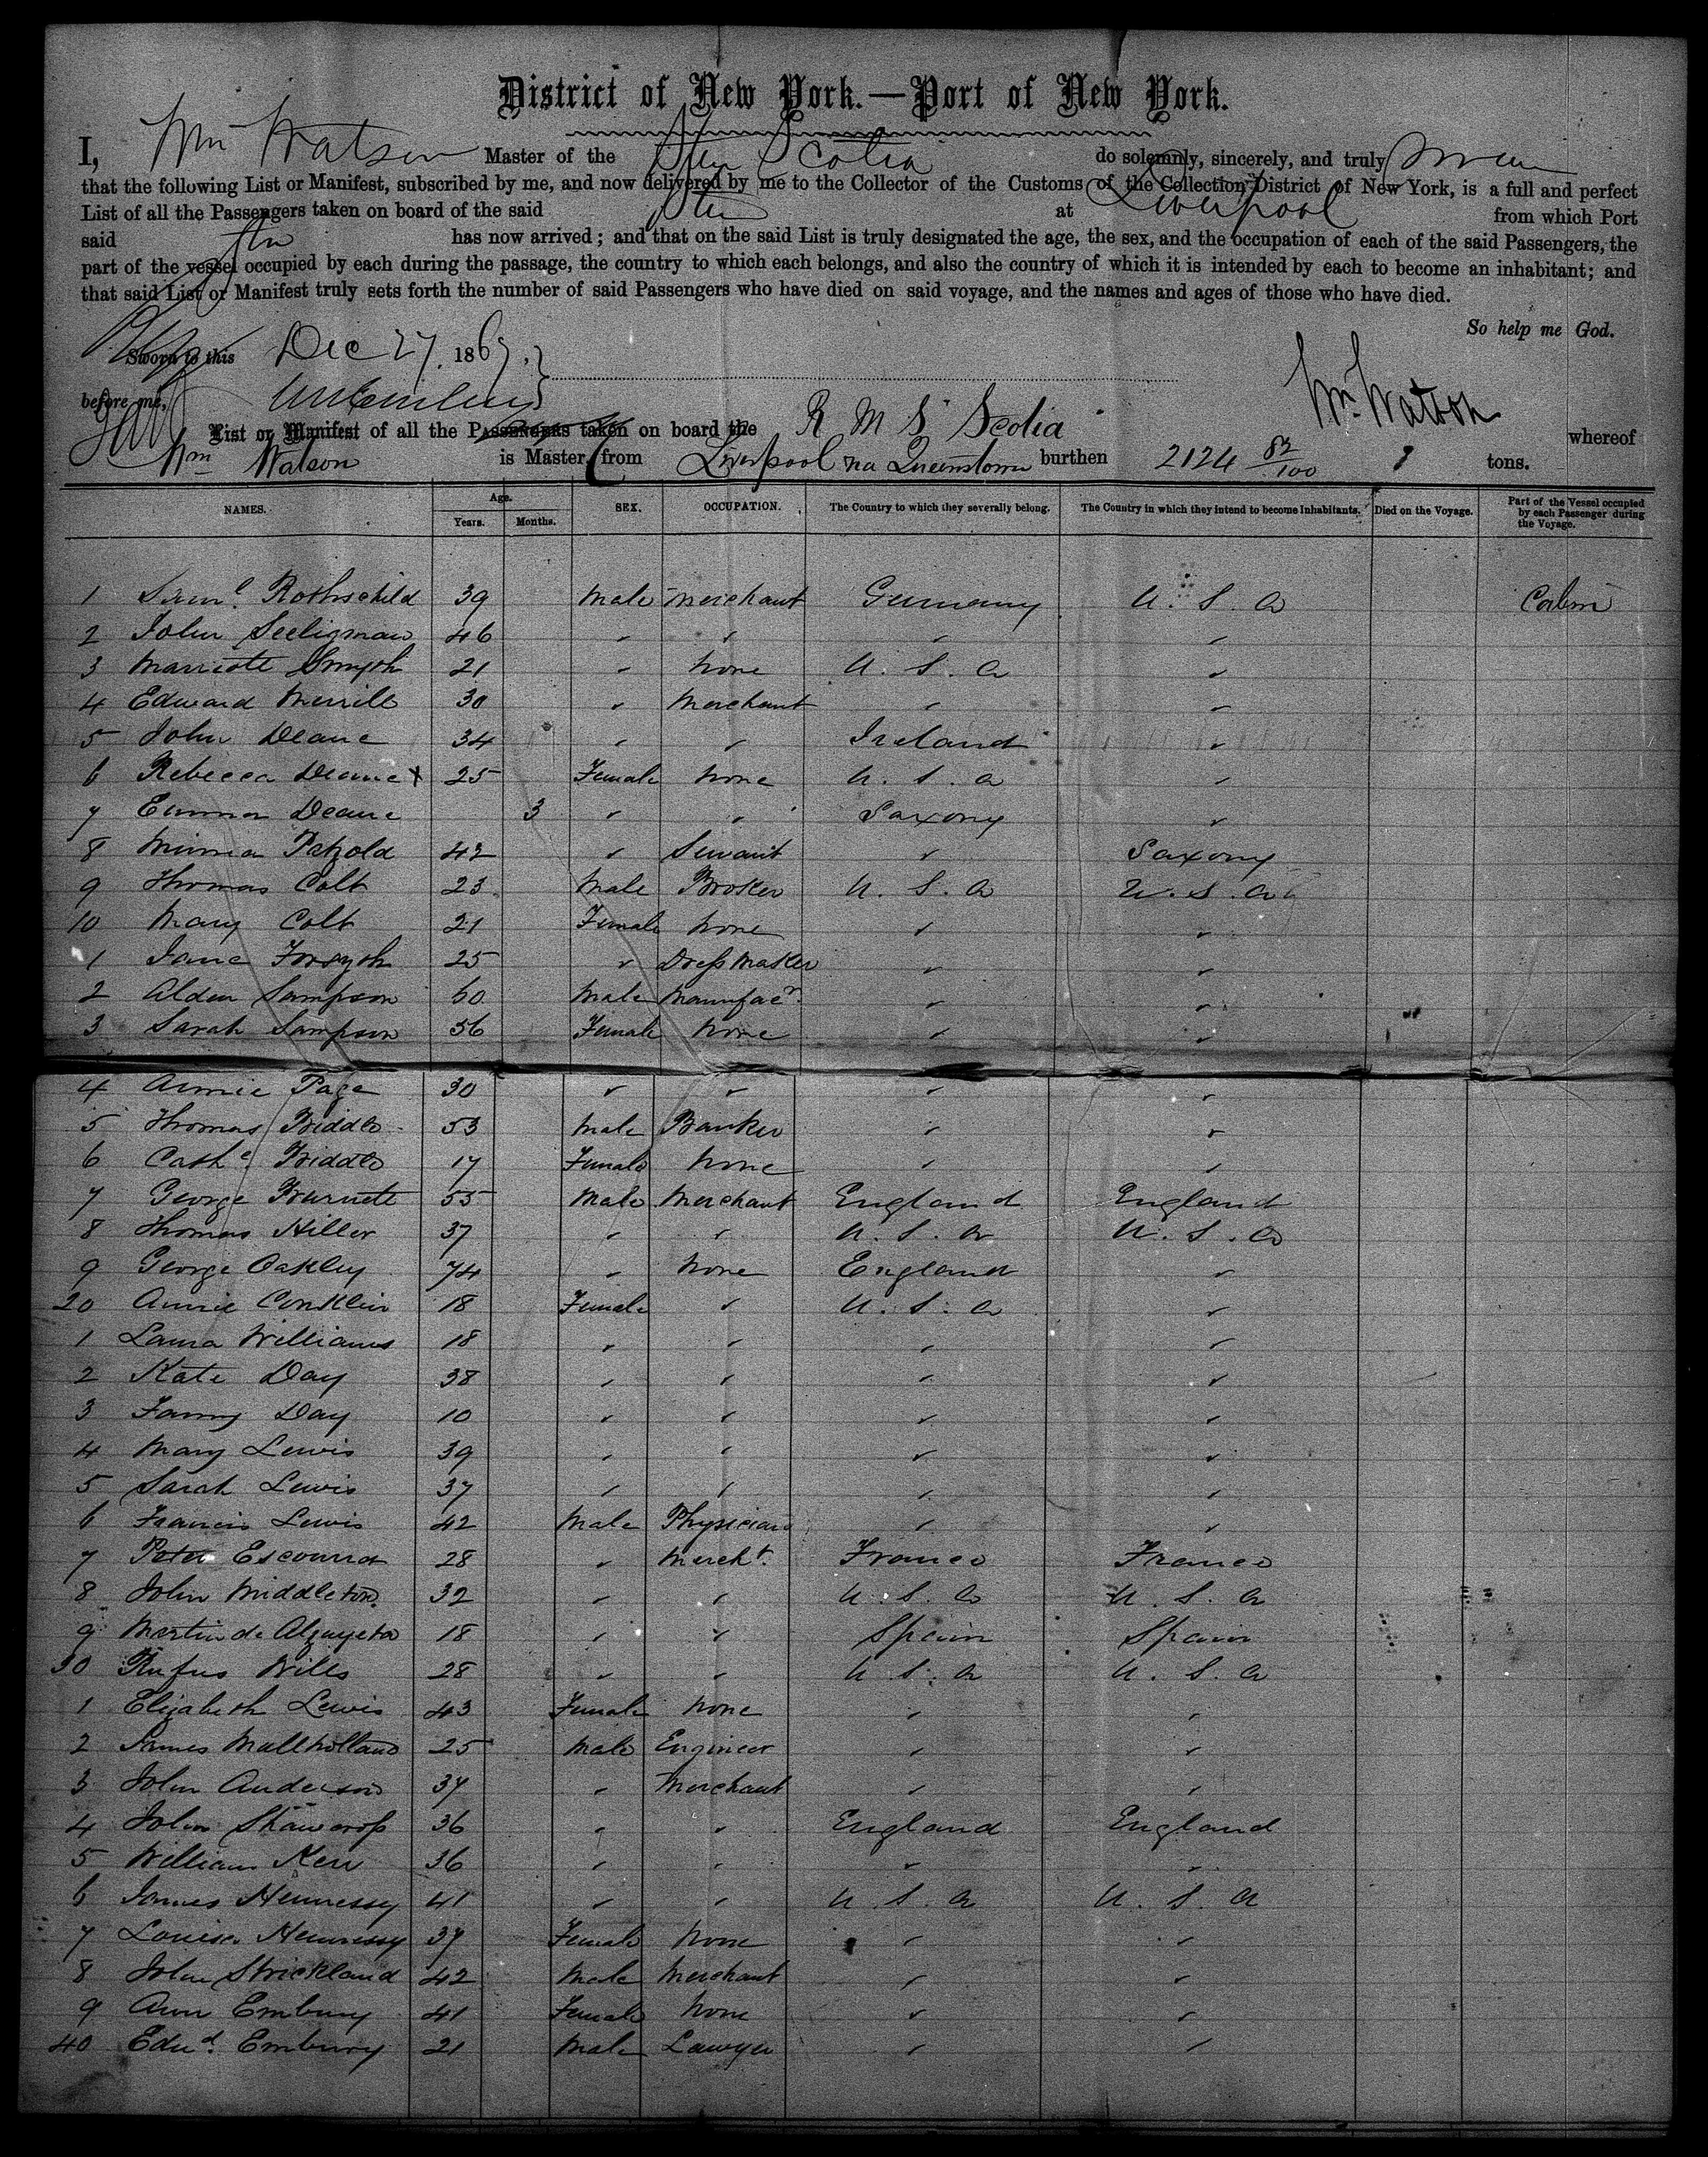 District of New York.—Port of New York.
I, Wm Watson Master of the Str Scotia do solemnly, sincerely, and truly swear
that the following List or Manifest, subscribed by me, and now delivered by me to the Collector of the Customs of the Collection District of New York, is a full and perfect
List of all the Passengers taken on board of the said Str at Liverpool from which Port
said Str has now arrived; and that on the said List is truly designated the age, the sex, and the occupation of each of the said Passengers, the
part of the vessel occupied by each during the passage, the country to which each belongs, and also the country of which it is intended by each to become an inhabitant; and
that said List or Manifest truly sets forth the number of said Passengers who have died on said voyage, and the names and ages of those who have died.
So help me God.
Sworn to this Dec 27, 1867,
before me,
Wm Watson
List or Manifest of all the Passengers taken on board the R M S Scotia whereof
Wm Watson is Master, from Liverpool via Queenstown burthen 2124 82/100 tons.
NAMES. Age. Years. Months. SEX. OCCUPATION. The Country to which they severally belong. The Country in which they intend to become Inhabitants. Died on the Voyage. Part of the Vessel occupied by each Passenger during the Voyage.
1 Saml. Rothschild 39 Male Merchant Germany U. S. A Cabin
2 John Seeligman 46 " " " "
3 Marriott Smyth 21 " None U. S. A "
4 Edward Merrill 30 " Merchant " "
5 John Deane 34 " " Ireland "
6 Rebecca Deane x 25 Female None U. S. A "
7 Emma Deane 3 " " Saxony "
8 Minna Petzold 42 " Servant " Saxony
9 Thomas Colt 23 Male Broker U. S. A U. S. A
10 Mary Colt 21 Female None " "
1 Jane Forsyth 25 " Dress Maker " "
2 Alden Sampson 60 Male Manufacr. " "
3 Sarah Sampson 56 Female None " "
4 Annie Page 30 " " " "
5 Thomas Biddle 53 Male Banker " "
6 Cathe Biddle 17 Female None " "
7 George Burnett 55 Male Merchant England England
8 Thomas Hiller 37 " " U. S. A U. S. A
9 George Oakley 74 " None England "
20 Annie Conklin 18 Female " U. S. A "
1 Laura Williams 18 " " " "
2 Kate Day 38 " " " "
3 Fanny Day 10 " " " "
4 Mary Lewis 39 " " " "
5 Sarah Lewis 37 " " " "
6 Francis Lewis 42 Male Physician " "
7 Peter 28 " Mercht. France France
8 John Middleton 32 " " U. S. A U. S. A
9 Martin de 18 " " Spain Spain
30 Rufus Wills 28 " " U. S. A U. S. A
1 Elizabeth Lewis 43 Female None " "
2 James Mullholland 25 Male Engineer " "
3 John Anderson 37 " Merchant " "
4 John Shawcross 36 " " England England
5 William Kerr 36 " " " "
6 James Hennessy 41 " " U. S. A U. S. A
7 Louisa Hennessy 37 Female None " "
8 John Strickland 42 Male Merchant " "
9 Ann Embury 41 Female None " "
40 Edwd. Embury 21 Male Lawyer " "